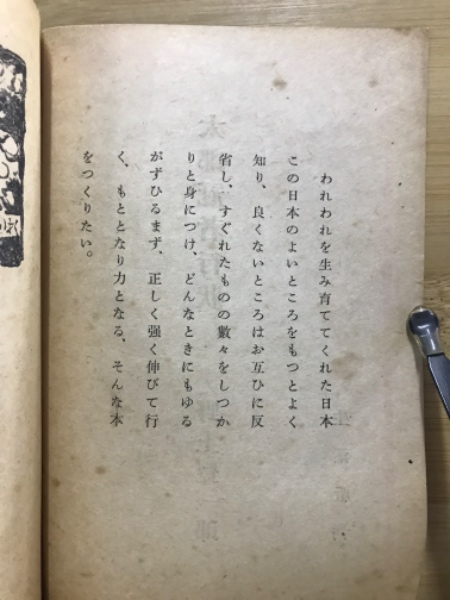 われわれを生み育ててくれた日本
この日本のよいところをもつとよく
知り、良くないところはお互ひに反
省し、すぐれたものの數々をしつか
りと身につけ、どんなときにもゆる
がずひるまず、正しく强く伸びて行
く、もととなり力となる、そんな本
をつくりたい。